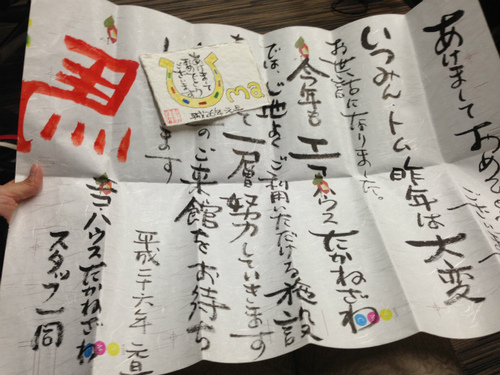 あけまして おめで
いつみん・トム 昨年は大変
お世話になりました。
今年も エコハウスたかねざわ
では、心地よくご利用いただける施設
して一層努力していきます
のご来館をお待ち
ます
平成二十六年
エコ・ハウスたかねざわ
スタッフ一同
あけまして
おめでとう
ございます
平成26年